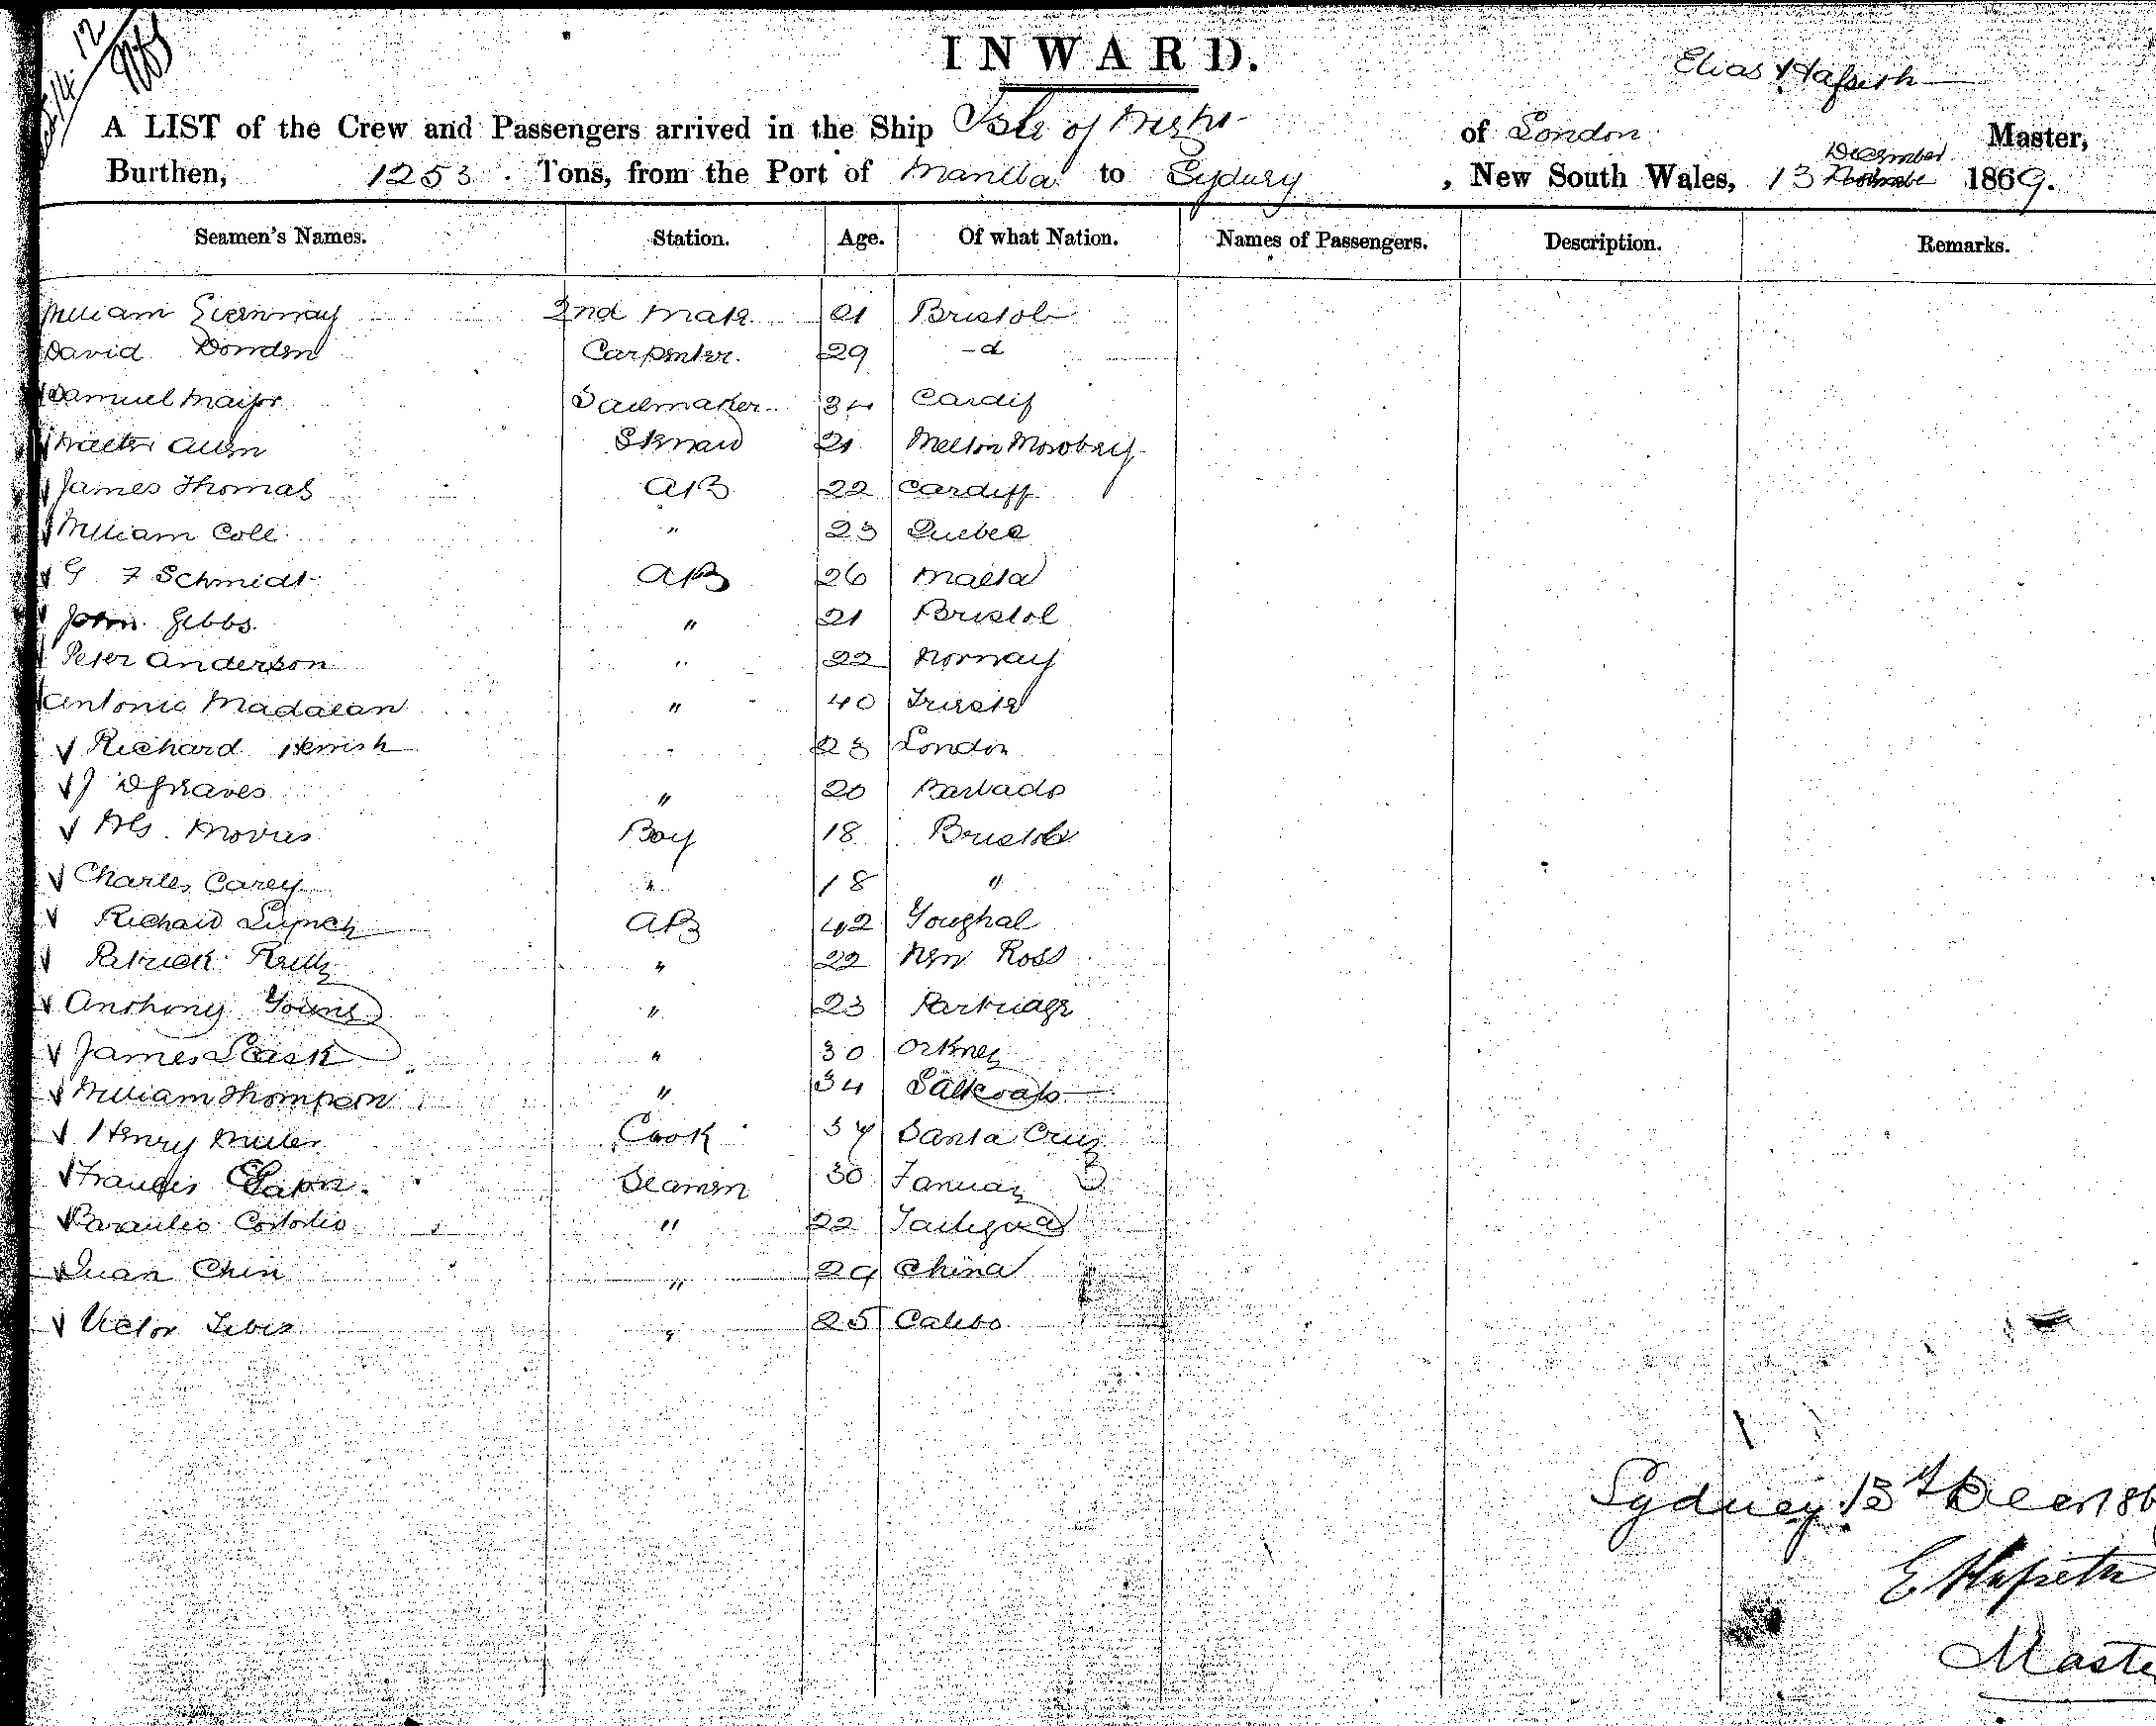 12
INWARD.
Elias
A LIST of the Crew and Passengers arrived in the Ship Isle of of London Master,
December
Burthen, 1253. Tons, from the Port of Manilla to Sydney, New South Wales, 13 1869.
Seamen's Names. Station. Age. Of what Nation. Names of Passengers. Description. Remarks.
William 2nd Mate 21 Bristol
David Dowden Carpenter. 29 -d
Samuel Major Sailmaker. 34 Cardif
Walter Allen Steward 21 Melton Mowbray
James Thomas AB 22 Cardiff
William Cole " 23 Quebec
G F Schmidt AB 26 Malta
John Gibbs. " 21 Bristol
Peter Anderson " 22 Norway
Antonio Madalan " 40 Trieste
Richard " 23 London
J Dgraves " 20 Barbado
Wm. Morris Boy 18 Bristol
Charles Carey " 18 "
Richard Lynch AB 42 Youghal
Patrick Reilly " 22 New Ross
Anthony Young " 23 Partridge
James Leask " 30 Orkney
William Thompson " 34 Saltcoats
Henry Miller Cook 37 Santa Cruz
Francis Seamen 30
" 22
Juan Chin " 29 China
Victor " 25 Calibo
Sydney 13th Decr 186
E
Maste